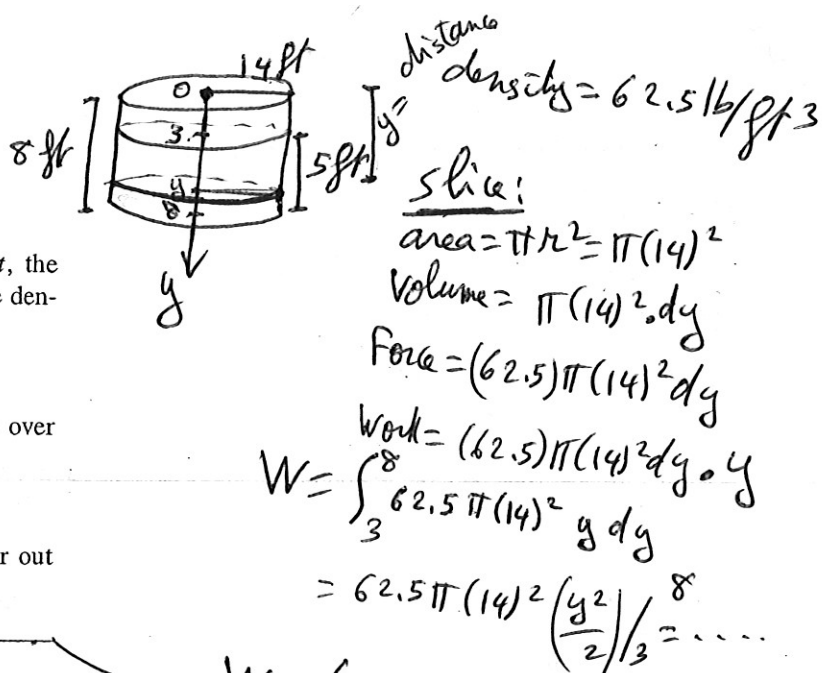 14 ft
0
8 ft
3
5 ft
y
8
y
y = distance
density = 62.5 lb/ft3
t, the
den-
over
r out
slice:
area = πr² = π(14)²
Volume = π(14)².dy
Force = (62.5)π(14)²dy
Work = (62.5)π(14)²dy . y
W = ∫₃⁸ 62.5π(14)² y dy
= 62.5π(14)² (y²/2)/₃⁸ = .....